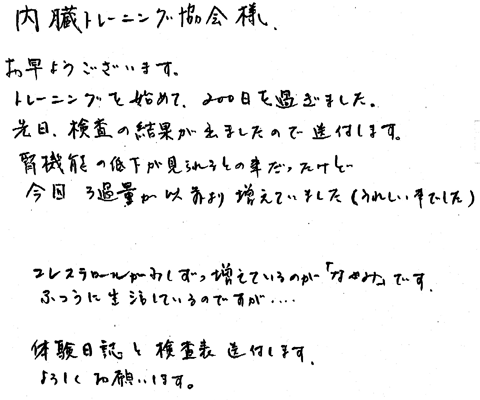 内臓トレーニング協会様、
お早ようございます。
トレーニングを始めて、200日を過ぎました。
先日、検査の結果が出ましたので送付します。
腎機能の低下が見られるとの事だったけど
今回 ろ過量が以前より増えていました(うれしい事でした)
コレステロールが少しずつ増えているのが「なやみ」です。
ふつうに生活しているのですが‥‥
体験日記と検査表送付します。
よろしくお願いします。